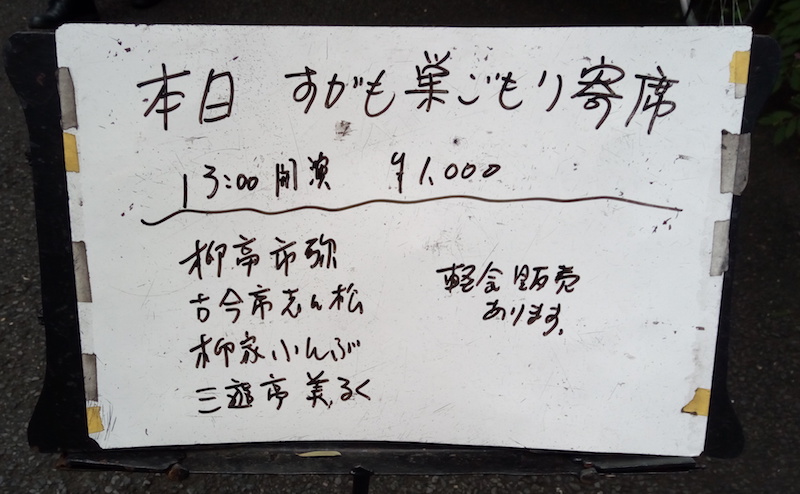 本日 すがも巣ごもり寄席
13:00開演 ¥1,000
柳亭市弥
古今亭志ん松
柳家小んぶ
三遊亭美るく
軽食販売
あります。